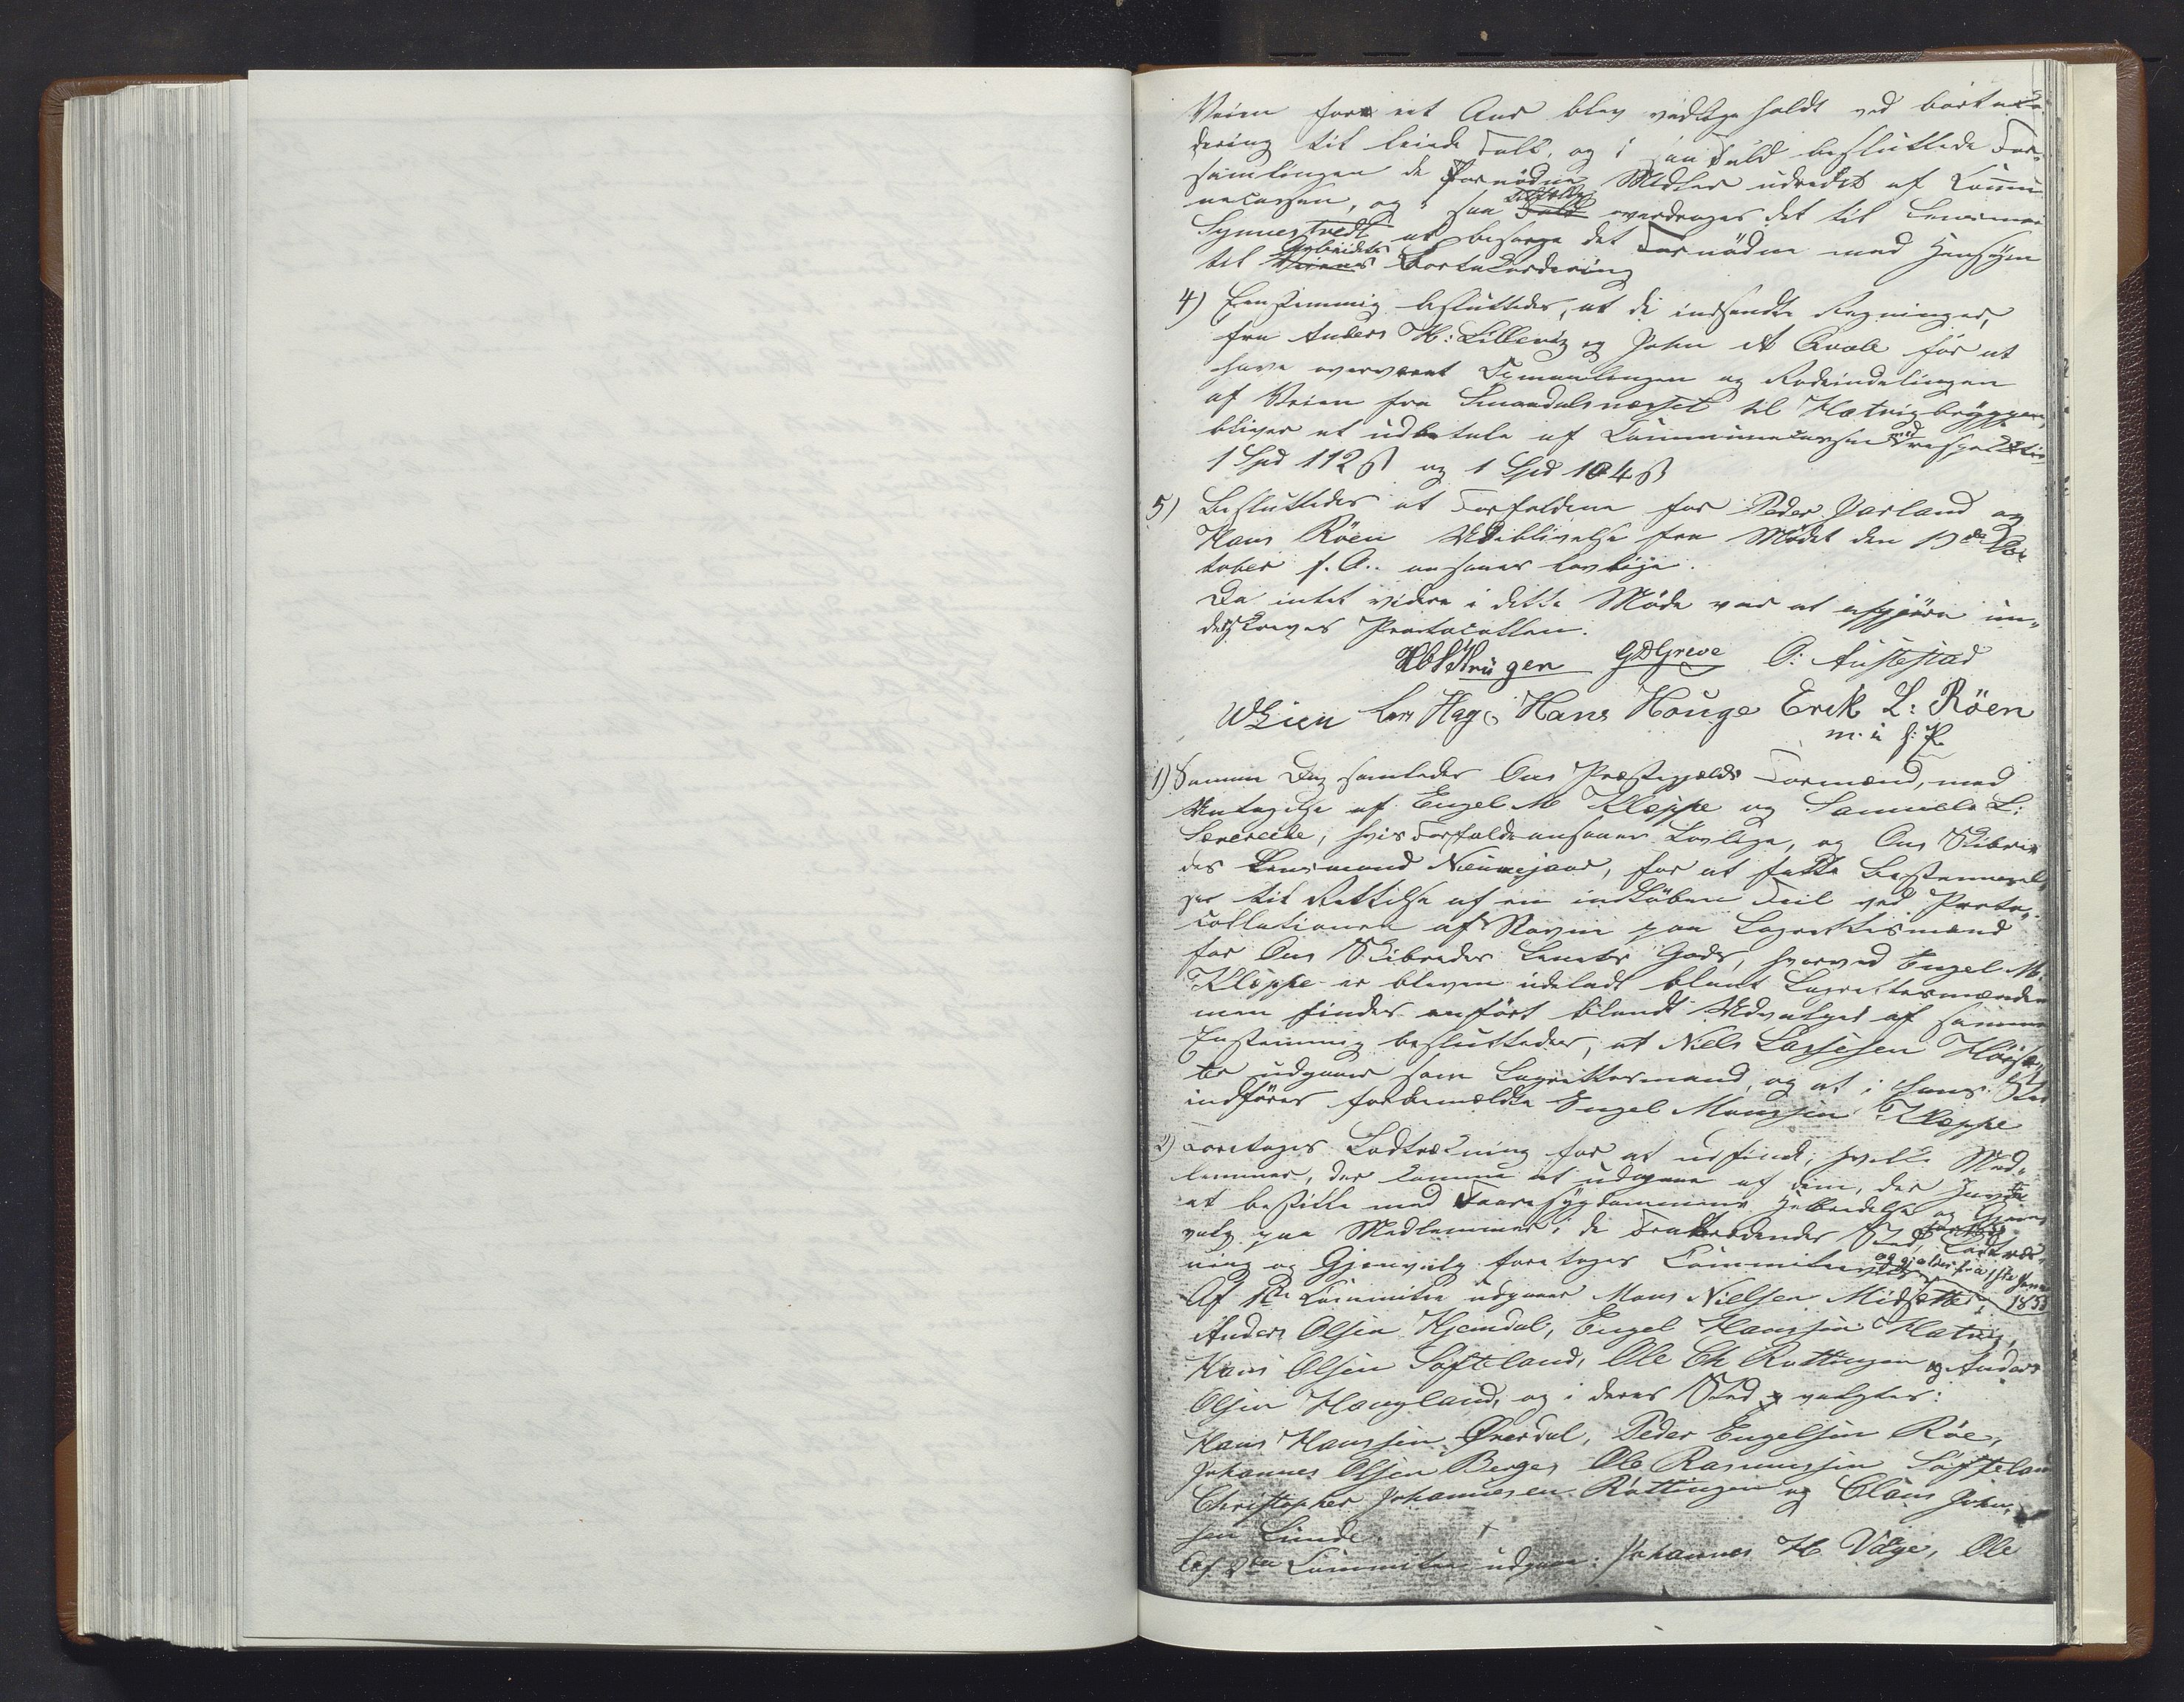 Veien for et Aar blev vedligeholdt ved bortakor
dering til leiede Folk, og i saa Fald besluttede For-
samlingen de fornødne Midler udredet af Commu
necassen, og i saa Tilfælde overdroges det til Lensmand
Synnestvedt at besørge det Fornødne med Hensyn
til Arbeidets Bortakkordering
4) Eenstemmig besluttedes, at de indsendte Regninger,
fra Anders H: Lillevig og John A Qvale for at
have overværet Opmaalingen og Rodeinddelingen
af Veien fra Smaadalsnesset til Hatvigbryggen,
bliver at udbetale af Communecassen med respective
1 Spd 112 ß og 1 Spd 104 ß
5) Besluttedes at Forfaldene for Peder Jarland og
Hans Röen Udeblivelse fra Mödet den 19de Oc
tober f. A. ansaaes lovlige.
Da intet videre i dette Möde var at afgjöre un-
derskreves Protocollen.
Krügen GD Greve O: Austestad
WLien Lars Hage Hans Houge Erik L: Röen
m. i h: P.
1) Samme Dag samledes Oos Præstegjelds Formænd, med
Undtagelse af Engel M Kleppe og Samuele L:
Særvold, hvis Forfald ansaaes Lovlige, og Oos Skibre
des Lensmand Nummejaer, for at fatte Bestemmel
ser til Rettelse af en indløben Feil ved Proto-
collationen af Navne paa Lagrettesmænd
for Oos Skibredes Lensets Gods, hvorved Engel M.
Kleppe er bleven udeladt blant Lagrettesmænden
men findes anført blandt Udvalget af samme
Enstemmig besluttedes, at Niels Larssen
ter udgaaer som Lagrettesmand, og at i hans Sted
indföres forbemeldte Engel Monssen Kleppe
2) Foretoges Lodtrækning for at udfinde, hvilke Med-
lemmer, der komme at udgaae af dem, der havde
at bestille med Faaresygdommens Helbredelse og Gjen
valg paa Medlemmer i de Fratrædendes Sted,
ning og Gjenvalg foretoges Committeeviis og gjelder fra 1ste Janr
Af 1te Committee udgaaer Mons Nielsen Midsæter, 1853
Anders Olsen Hjemdal, Engel Hanssen Hatvig,
Hans Olsen Søfteland, Ole Ch Röttingen og Anders
Olsen Haugland, og i deres Sted valgtes:
Hans Hanssen Øvredal, Peder Engelsen Röe,
Johannes Olsen Berge, Ole Rasmussen Søftelan
Christopher Johannesen Röttingen og Claus John-
sen Lunde.
Af 2den Committee udgaaer: Johannes H Valge, Ole